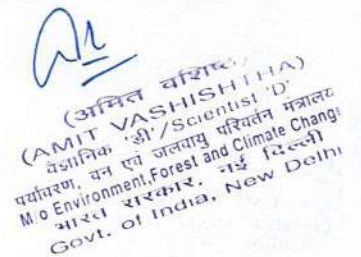 (अमित वशिष्ठ)
(AMIT VASHISHTHA)
वैज्ञानिक 'डी'/Scientist 'D'
पर्यावरण, वन एवं जलवायु परिवर्तन मंत्रालय
M/o Environment,Forest and Climate Change
भारत सरकार, नई दिल्ली
Govt. of India, New Delhi